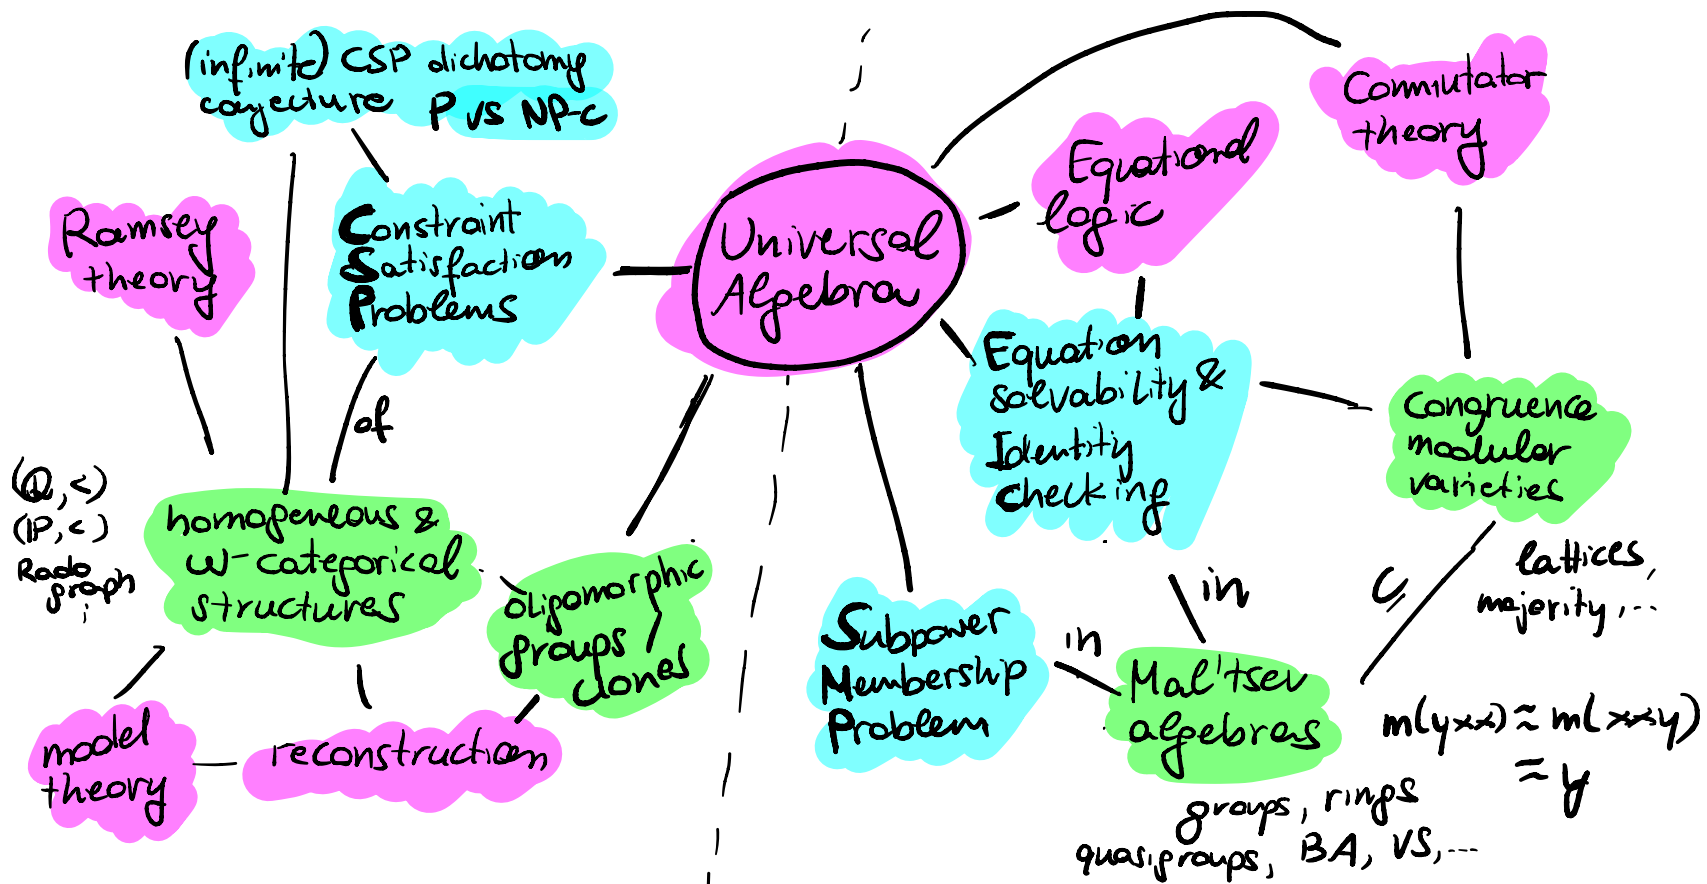 (infinite) CSP dichotomy
conjecture P vs NP-c
Ramsey
theory
Constraint
Satisfaction
Problems
of
(Q, <)
(P, <)
Rado
graph
homogeneous &
ω-categorical
structures
oligomorphic
groups /
clones
model
theory
reconstruction
Universal
Algebra
Equational
logic
Commutator
theory
Equation
solvability &
Identity
checking
Congruence
modular
varieties
lattices,
majority, ...
in
⊂
Subpower
Membership
Problem
in
Mal'tsev
algebras
m(yxx) ≈ m(xxy)
≈ y
groups, rings
quasigroups, BA, VS, ...